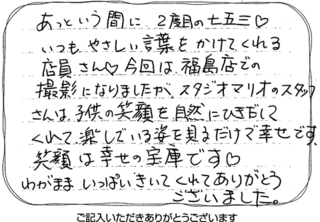 あっという間に 2度目の七五三♡
いつもやさしい言葉をかけてくれる
店員さん♡今回は、福島店での
撮影になりましたが、スタジオマリオのスタッフ
さんは、子供の笑顔を自然にひきだして
くれて楽している姿を見るだけで幸せです。
笑顔は幸せの宝庫です♡
わがままいっぱいきいてくれてありがとう
ございました。
ご記入いただきありがとうございます